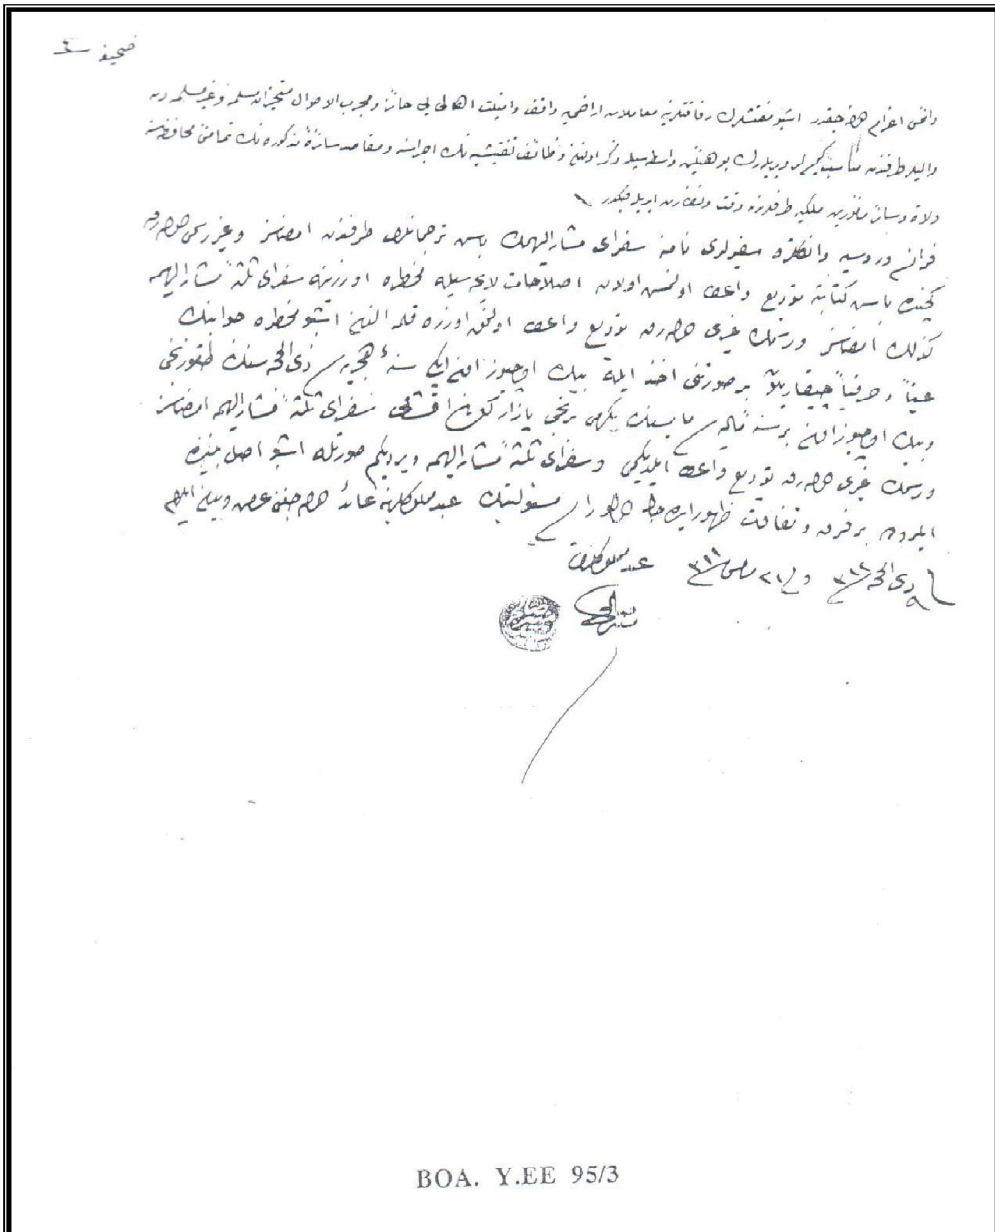 صحيفه ٦
اعزام اشبو مفتشلرك رفاقتلرينه معاملات اراضی يه واقف وامنيت اهالی يی حائز ومجرب الاحوال مسلم وغير مسلم
طرفندن ويريله رك بو هيئتك واسطه سيله ذكر اولنان وظائف تفتيشيه نك اجراسنه ومقاصد سائرۀ مذكوره نك تمامئ محافظه سنه
ولاة وسائر مأمورين ملكيه طرفلرندن دقت ايديله جكدر
فرانسه وروسيه وانكلتره سفيرلری نامنه سفرای مشاراليهمك باش ترجمانلری طرفندن امضاسز وغير رسمی اوله رق
باش كتابته توديع واعطا اولنمش اولان اصلاحات لايحه سيله مخطره اوزرينه سفرای ثلثۀ مشاراليهمه
كذلك امضاسز ورسمك غيری اوله رق توديع واعطا اولنمق اوزره قلمه النان اشبو مخطره جوابينك
عيناً وحرفياً چيقاريلان بر صورتنی اخذ ايله بيك اوچيوز اون ايكی سنۀ هجريه سی ذی الحجه سنك طقوزنجی
وبيك اوچيوز اون بر سنۀ ماليه سی مايسنك يكرمی برنجی بازار كونی اقشامی سفرای ثلثۀ مشاراليهمه امضاسز
ورسمك غيری اوله رق توديع واعطا ايلديكمی وسفرای ثلثۀ مشاراليهمه ويرديكم صورتله اشبو اصل بيننده
بر فرق وتفاوت ظهور ايده جك اولور ايسه مسئوليتك عبد مملوكلرينه عائد اوله جغنی عرض وتأمين ايلرم
٩ ذی الحجه ٣١٢ و فی ٢١ مايس ٣١١ عبد مملوكلری
BOA. Y.EE 95/3